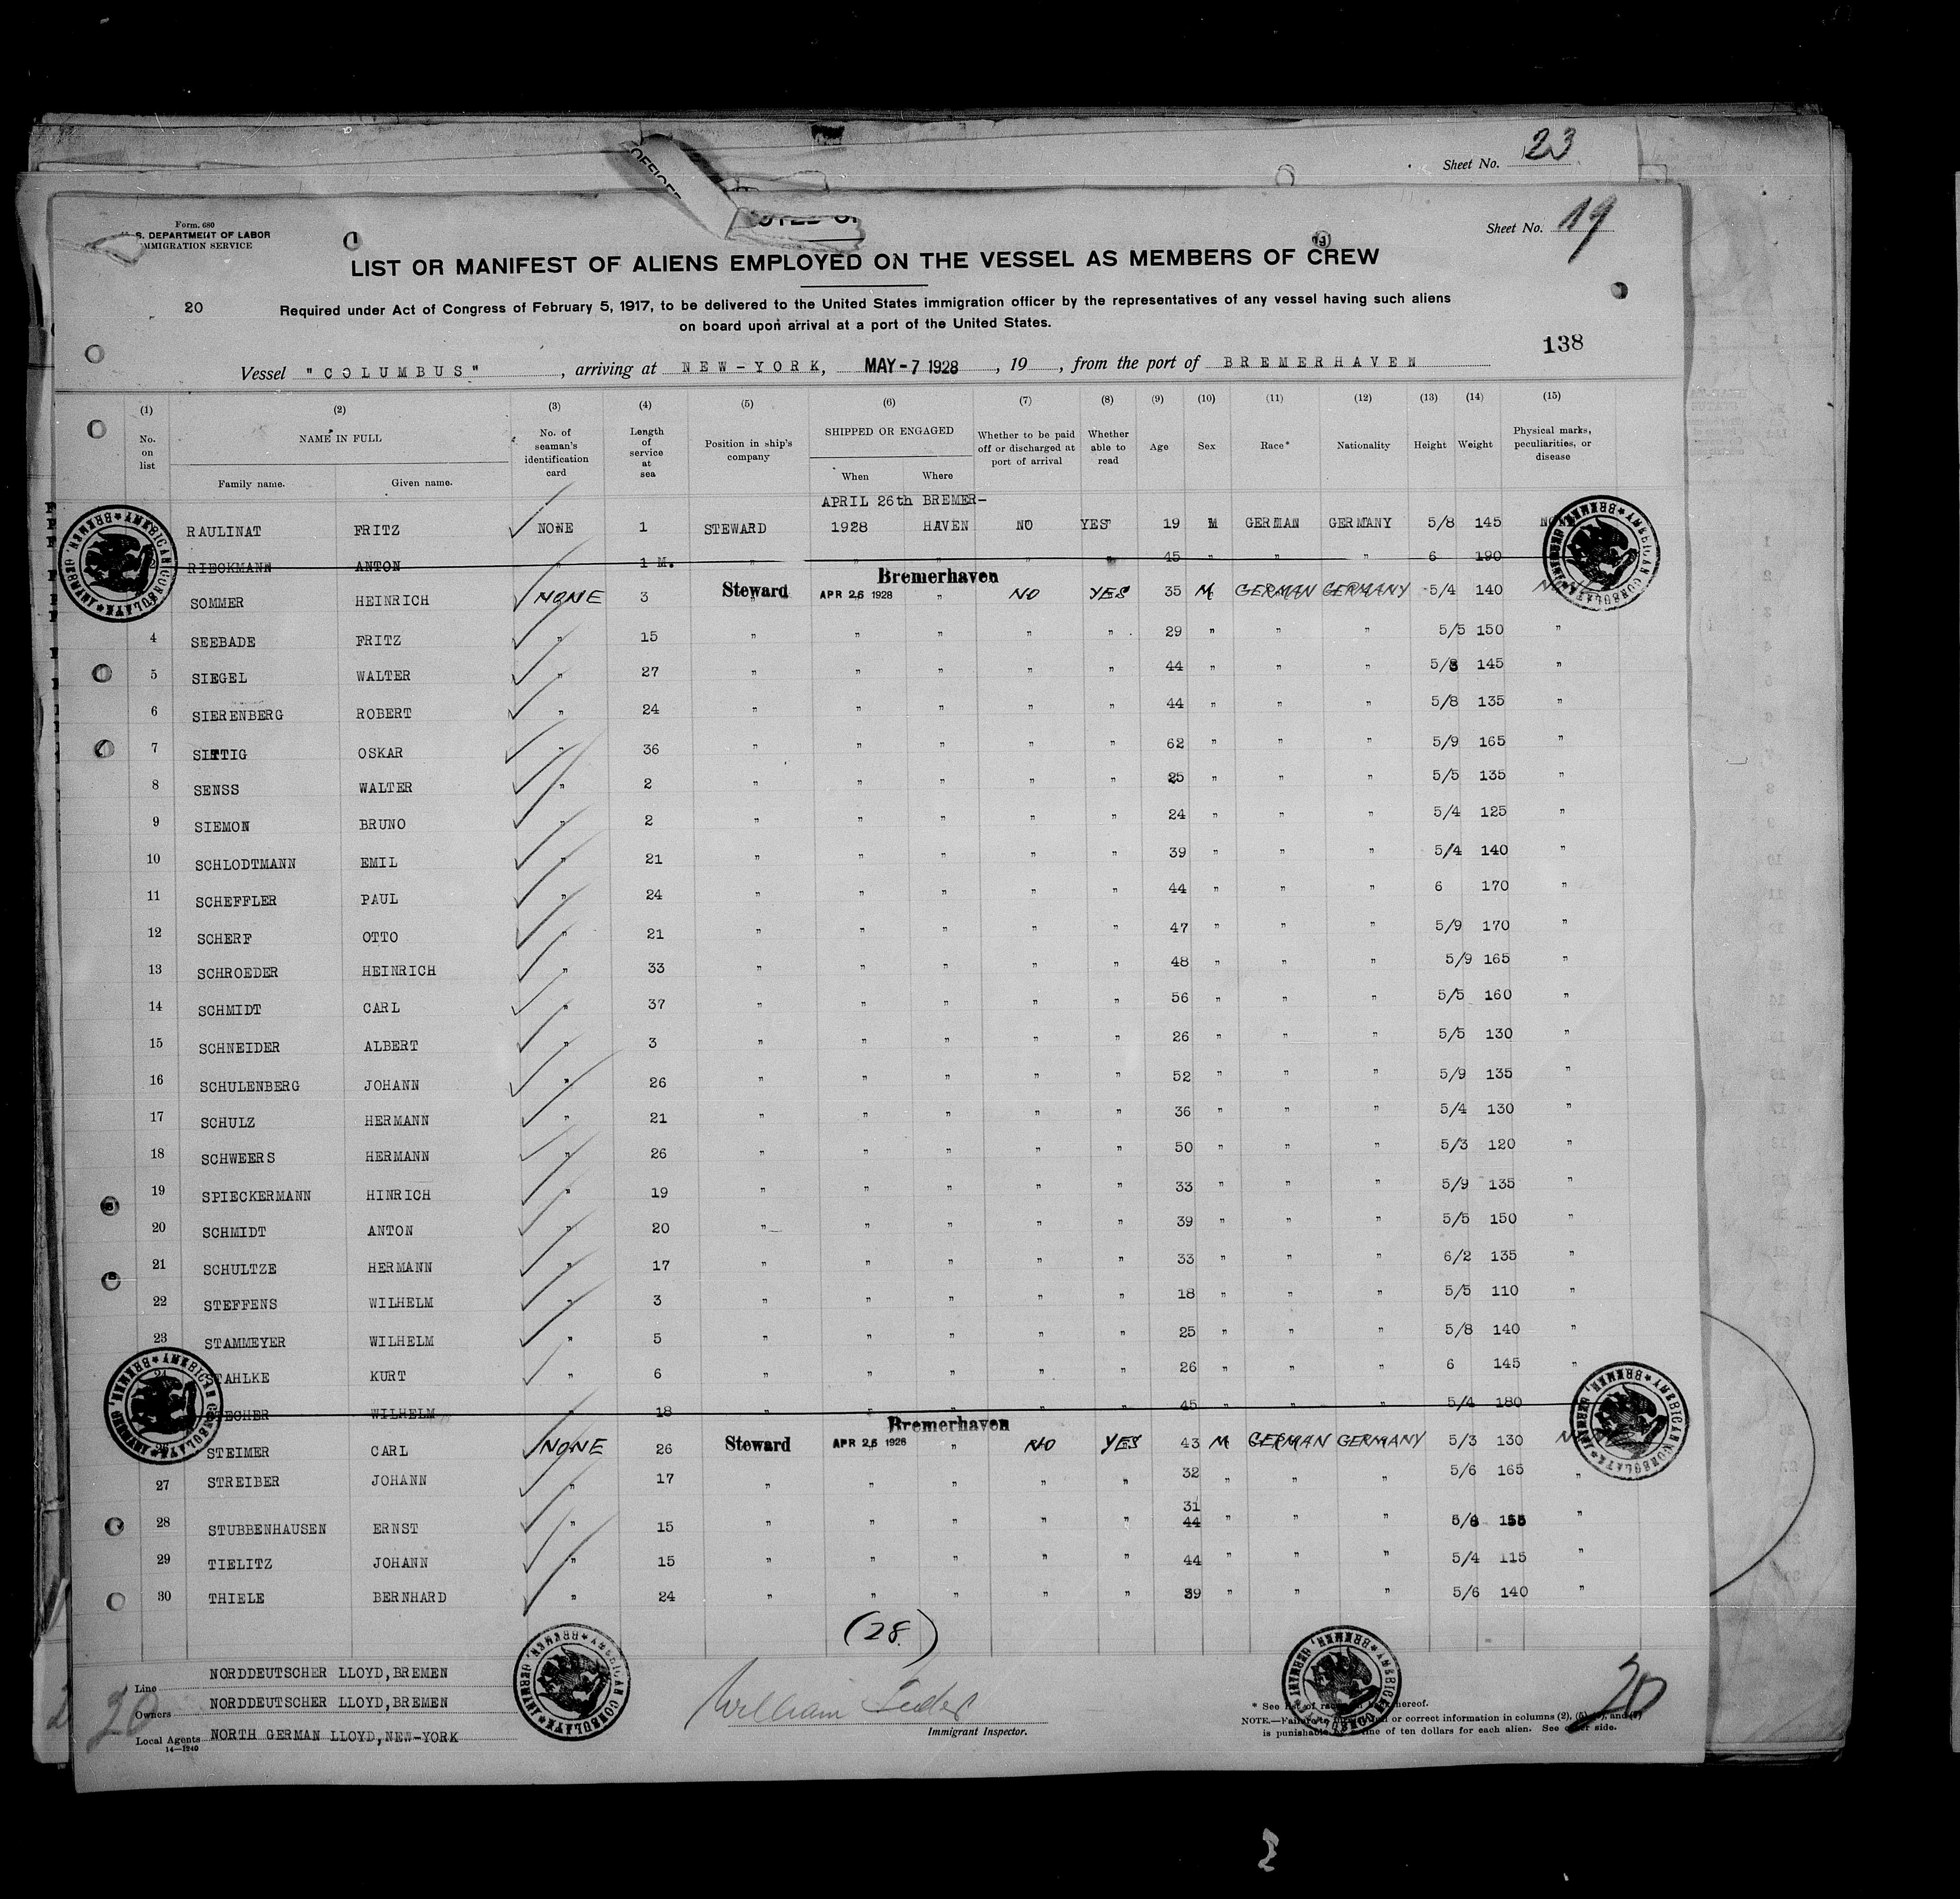 Sheet No. 23
Sheet No. 19
Form. 680
S. DEPARTMENT OF LABOR
IMMIGRATION SERVICE
LIST OR MANIFEST OF ALIENS EMPLOYED ON THE VESSEL AS MEMBERS OF CREW
20
Required under Act of Congress of February 5, 1917, to be delivered to the United States immigration officer by the representatives of any vessel having such aliens
on board upon arrival at a port of the United States.
138
Vessel "COLUMBUS", arriving at NEW-YORK, MAY - 7 1928, 19 , from the port of BREMERHAVEN
(1) (2) (3) (4) (5) (6) (7) (8) (9) (10) (11) (12) (13) (14) (15)
No. on list NAME IN FULL Family name. Given name. No. of seaman's identification card Length of service at sea Position in ship's company SHIPPED OR ENGAGED When Where Whether to be paid off or discharged at port of arrival Whether able to read Age Sex Race* Nationality Height Weight Physical marks, peculiarities, or disease
APRIL 26th BREMER-
RAULINAT FRITZ NONE 1 STEWARD 1928 HAVEN NO YES 19 M GERMAN GERMANY 5/8 145
RIECKMANN ANTON " 1 M. " " " " " 45 " " " 6 190
Bremerhaven
SOMMER HEINRICH NONE 3 Steward APR 26 1928 " NO YES 35 M GERMAN GERMANY 5/4 140 NONE
4 SEEBADE FRITZ " 15 " " " " " 29 " " " 5/5 150 "
5 SIEGEL WALTER " 27 " " " " " 44 " " " 5/8 145 "
6 SIERENBERG ROBERT " 24 " " " " " 44 " " " 5/8 135 "
7 SITTIG OSKAR " 36 " " " " " 62 " " " 5/9 165 "
8 SENSS WALTER " 2 " " " " " 25 " " " 5/5 135 "
9 SIEMON BRUNO " 2 " " " " " 24 " " " 5/4 125 "
10 SCHLODTMANN EMIL " 21 " " " " " 39 " " " 5/4 140 "
11 SCHEFFLER PAUL " 24 " " " " " 44 " " " 6 170 "
12 SCHERF OTTO " 21 " " " " " 47 " " " 5/9 170 "
13 SCHROEDER HEINRICH " 33 " " " " " 48 " " " 5/9 165 "
14 SCHMIDT CARL " 37 " " " " " 56 " " " 5/5 160 "
15 SCHNEIDER ALBERT " 3 " " " " " 26 " " " 5/5 130 "
16 SCHULENBERG JOHANN " 26 " " " " " 52 " " " 5/9 135 "
17 SCHULZ HERMANN " 21 " " " " " 36 " " " 5/4 130 "
18 SCHWEERS HERMANN " 26 " " " " " 50 " " " 5/3 120 "
19 SPIECKERMANN HINRICH " 19 " " " " " 33 " " " 5/9 135 "
20 SCHMIDT ANTON " 20 " " " " " 39 " " " 5/5 150 "
21 SCHULTZE HERMANN " 17 " " " " " 33 " " " 6/2 135 "
22 STEFFENS WILHELM " 3 " " " " " 18 " " " 5/5 110 "
23 STAMMEYER WILHELM " 5 " " " " " 25 " " " 5/8 140 "
24 STAHLKE KURT " 6 " " " " " 26 " " " 6 145 "
STECHER WILHELM " 18 " " " " " 45 " " " 5/4 180
Bremerhaven
26 STEIMER CARL NONE 26 Steward APR 26 1928 " NO YES 43 M GERMAN GERMANY 5/3 130
27 STREIBER JOHANN " 17 " " " " " 32 " " " 5/6 165 "
31
28 STUBBENHAUSEN ERNST " 15 " " " " " 44 " " " 5/8 155 "
29 TIELITZ JOHANN " 15 " " " " " 44 " " " 5/4 115 "
30 THIELE BERNHARD " 24 " " " " " 39 " " " 5/6 140 "
(28.)
Line NORDDEUTSCHER LLOYD, BREMEN
Owners NORDDEUTSCHER LLOYD, BREMEN
Local Agents NORTH GERMAN LLOYD, NEW-YORK
14—1240
20
William
Immigrant Inspector.
* See list of races on back hereof.
NOTE.—Failure to or correct information in columns (2), (5), and
is punishable fine of ten dollars for each alien. See other side.
20
AMERICAN CONSULATE * BREMEN, GERMANY *